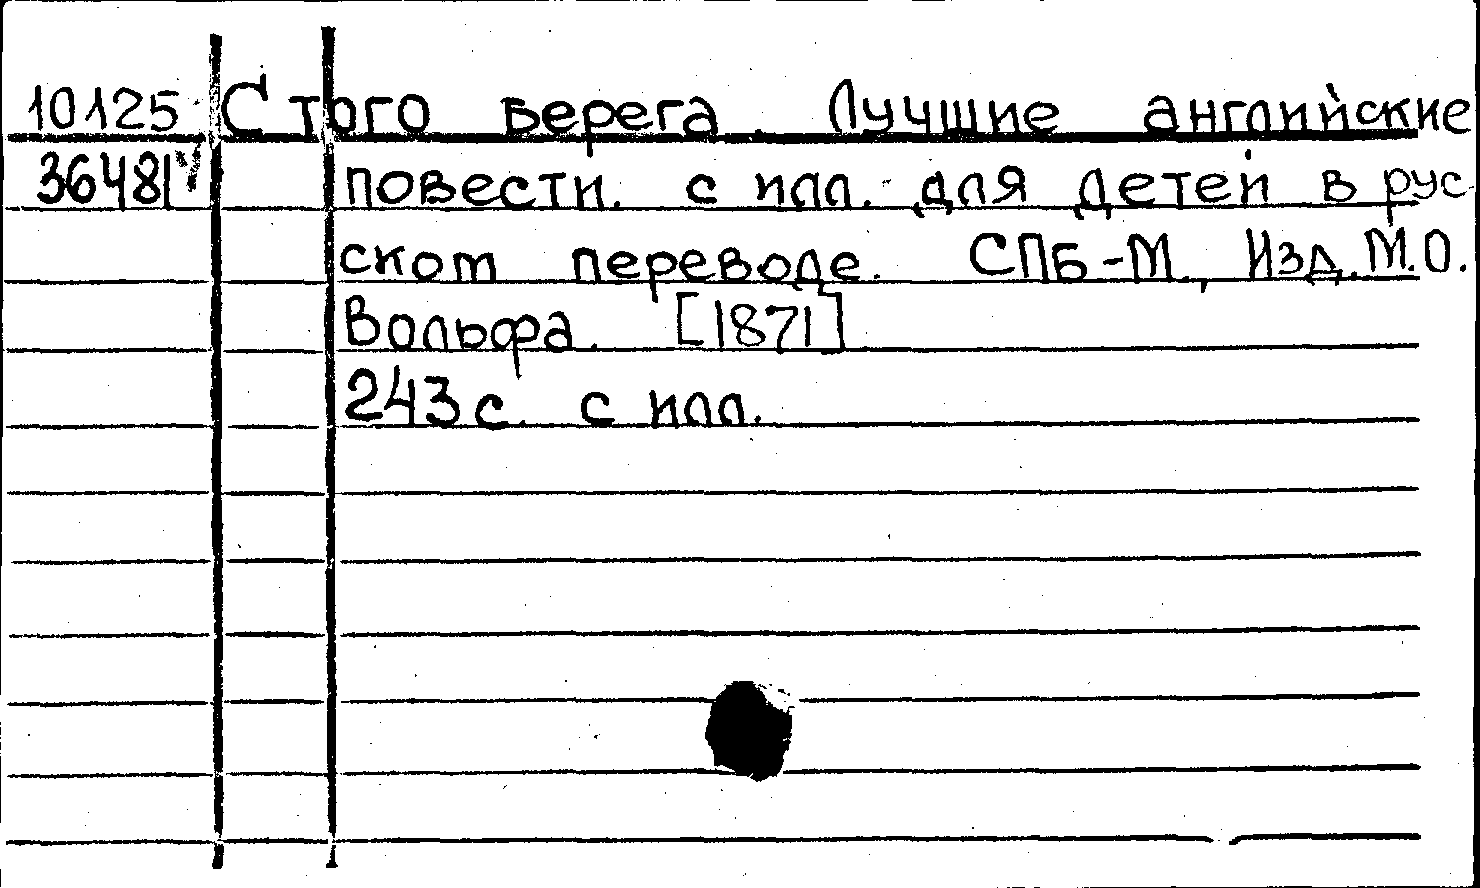 10125 С того берега. Лучшие английские
36481 повести. с илл. для детей в рус-
ском переводе. СПБ-М., Изд. М.О.
Вольфа. [1871]
243 с. с илл.